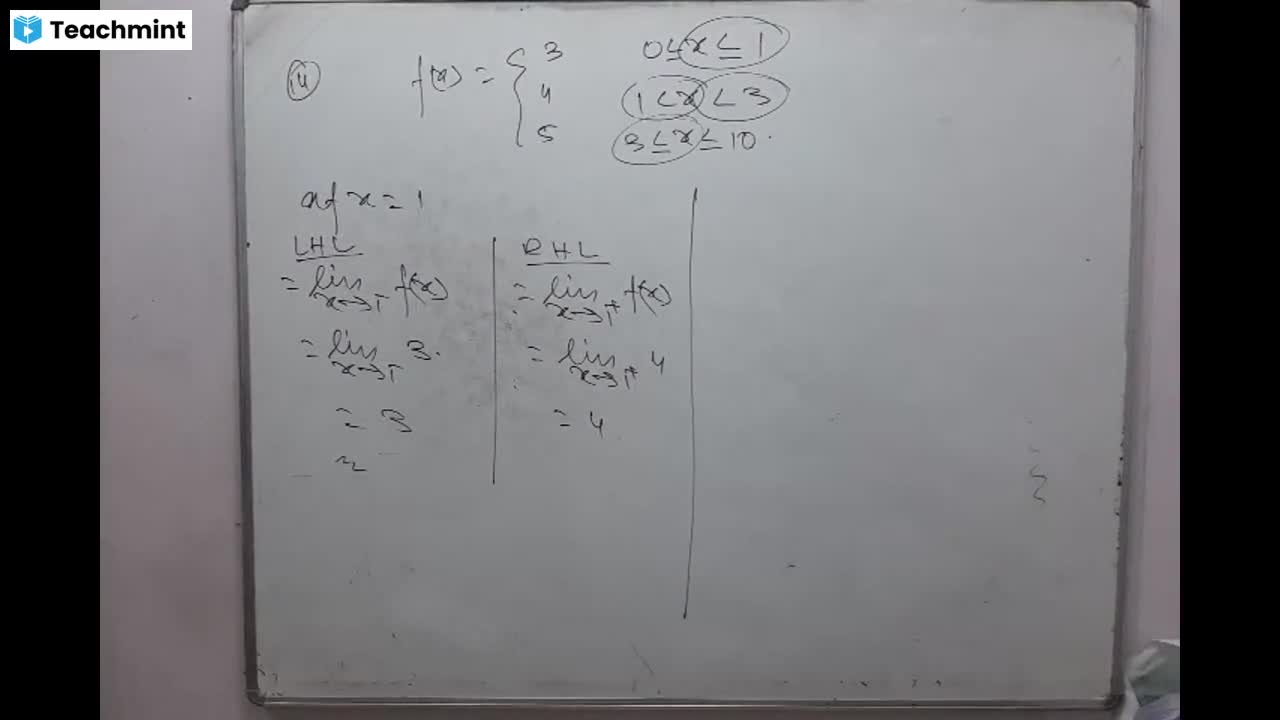 Teachmint
(14) f(x) = { 3 0≤x≤1
4 1<x<3
5 3≤x≤10.
at x=1
LHL
= lim x→1⁻ f(x)
= lim x→1⁻ 3.
= 3
RHL
= lim x→1⁺ f(x)
= lim x→1⁺ 4
= 4